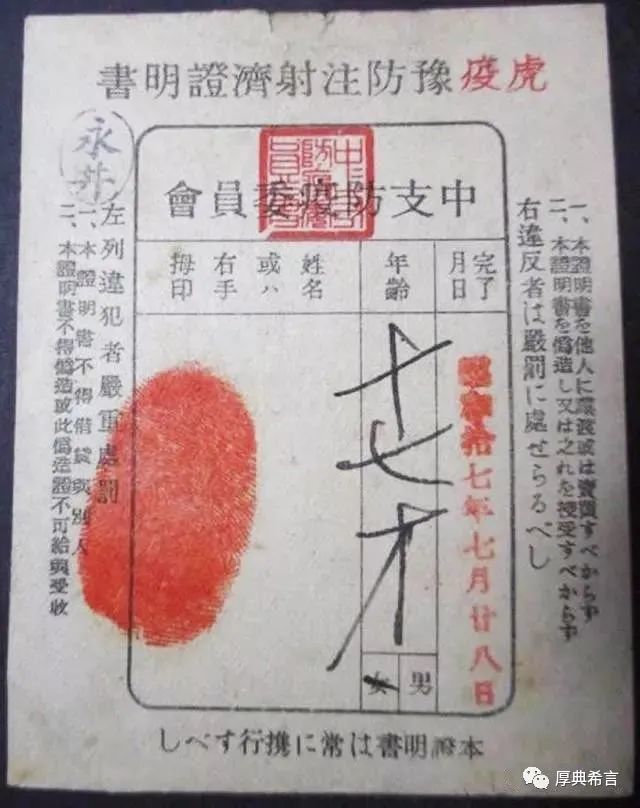 虎疫豫防注射濟證明書
一、本證明書を他人に讓渡或は賣買すべからず
二、本證明書を僞造し又は之れを授受すべからず
右違反者は嚴罰に處せらるべし
中支防疫委員會
完了
月日
年齡
姓名
或ハ
右手
拇印
昭和拾七年七月廿八日
十七才
男
女
永井
左列違犯者嚴重處罰
一、本證明書不得借貸與別人
二、本證明書不得僞造或此僞造證不可給與受收
本證明書は常に携行すべし
厚典希言